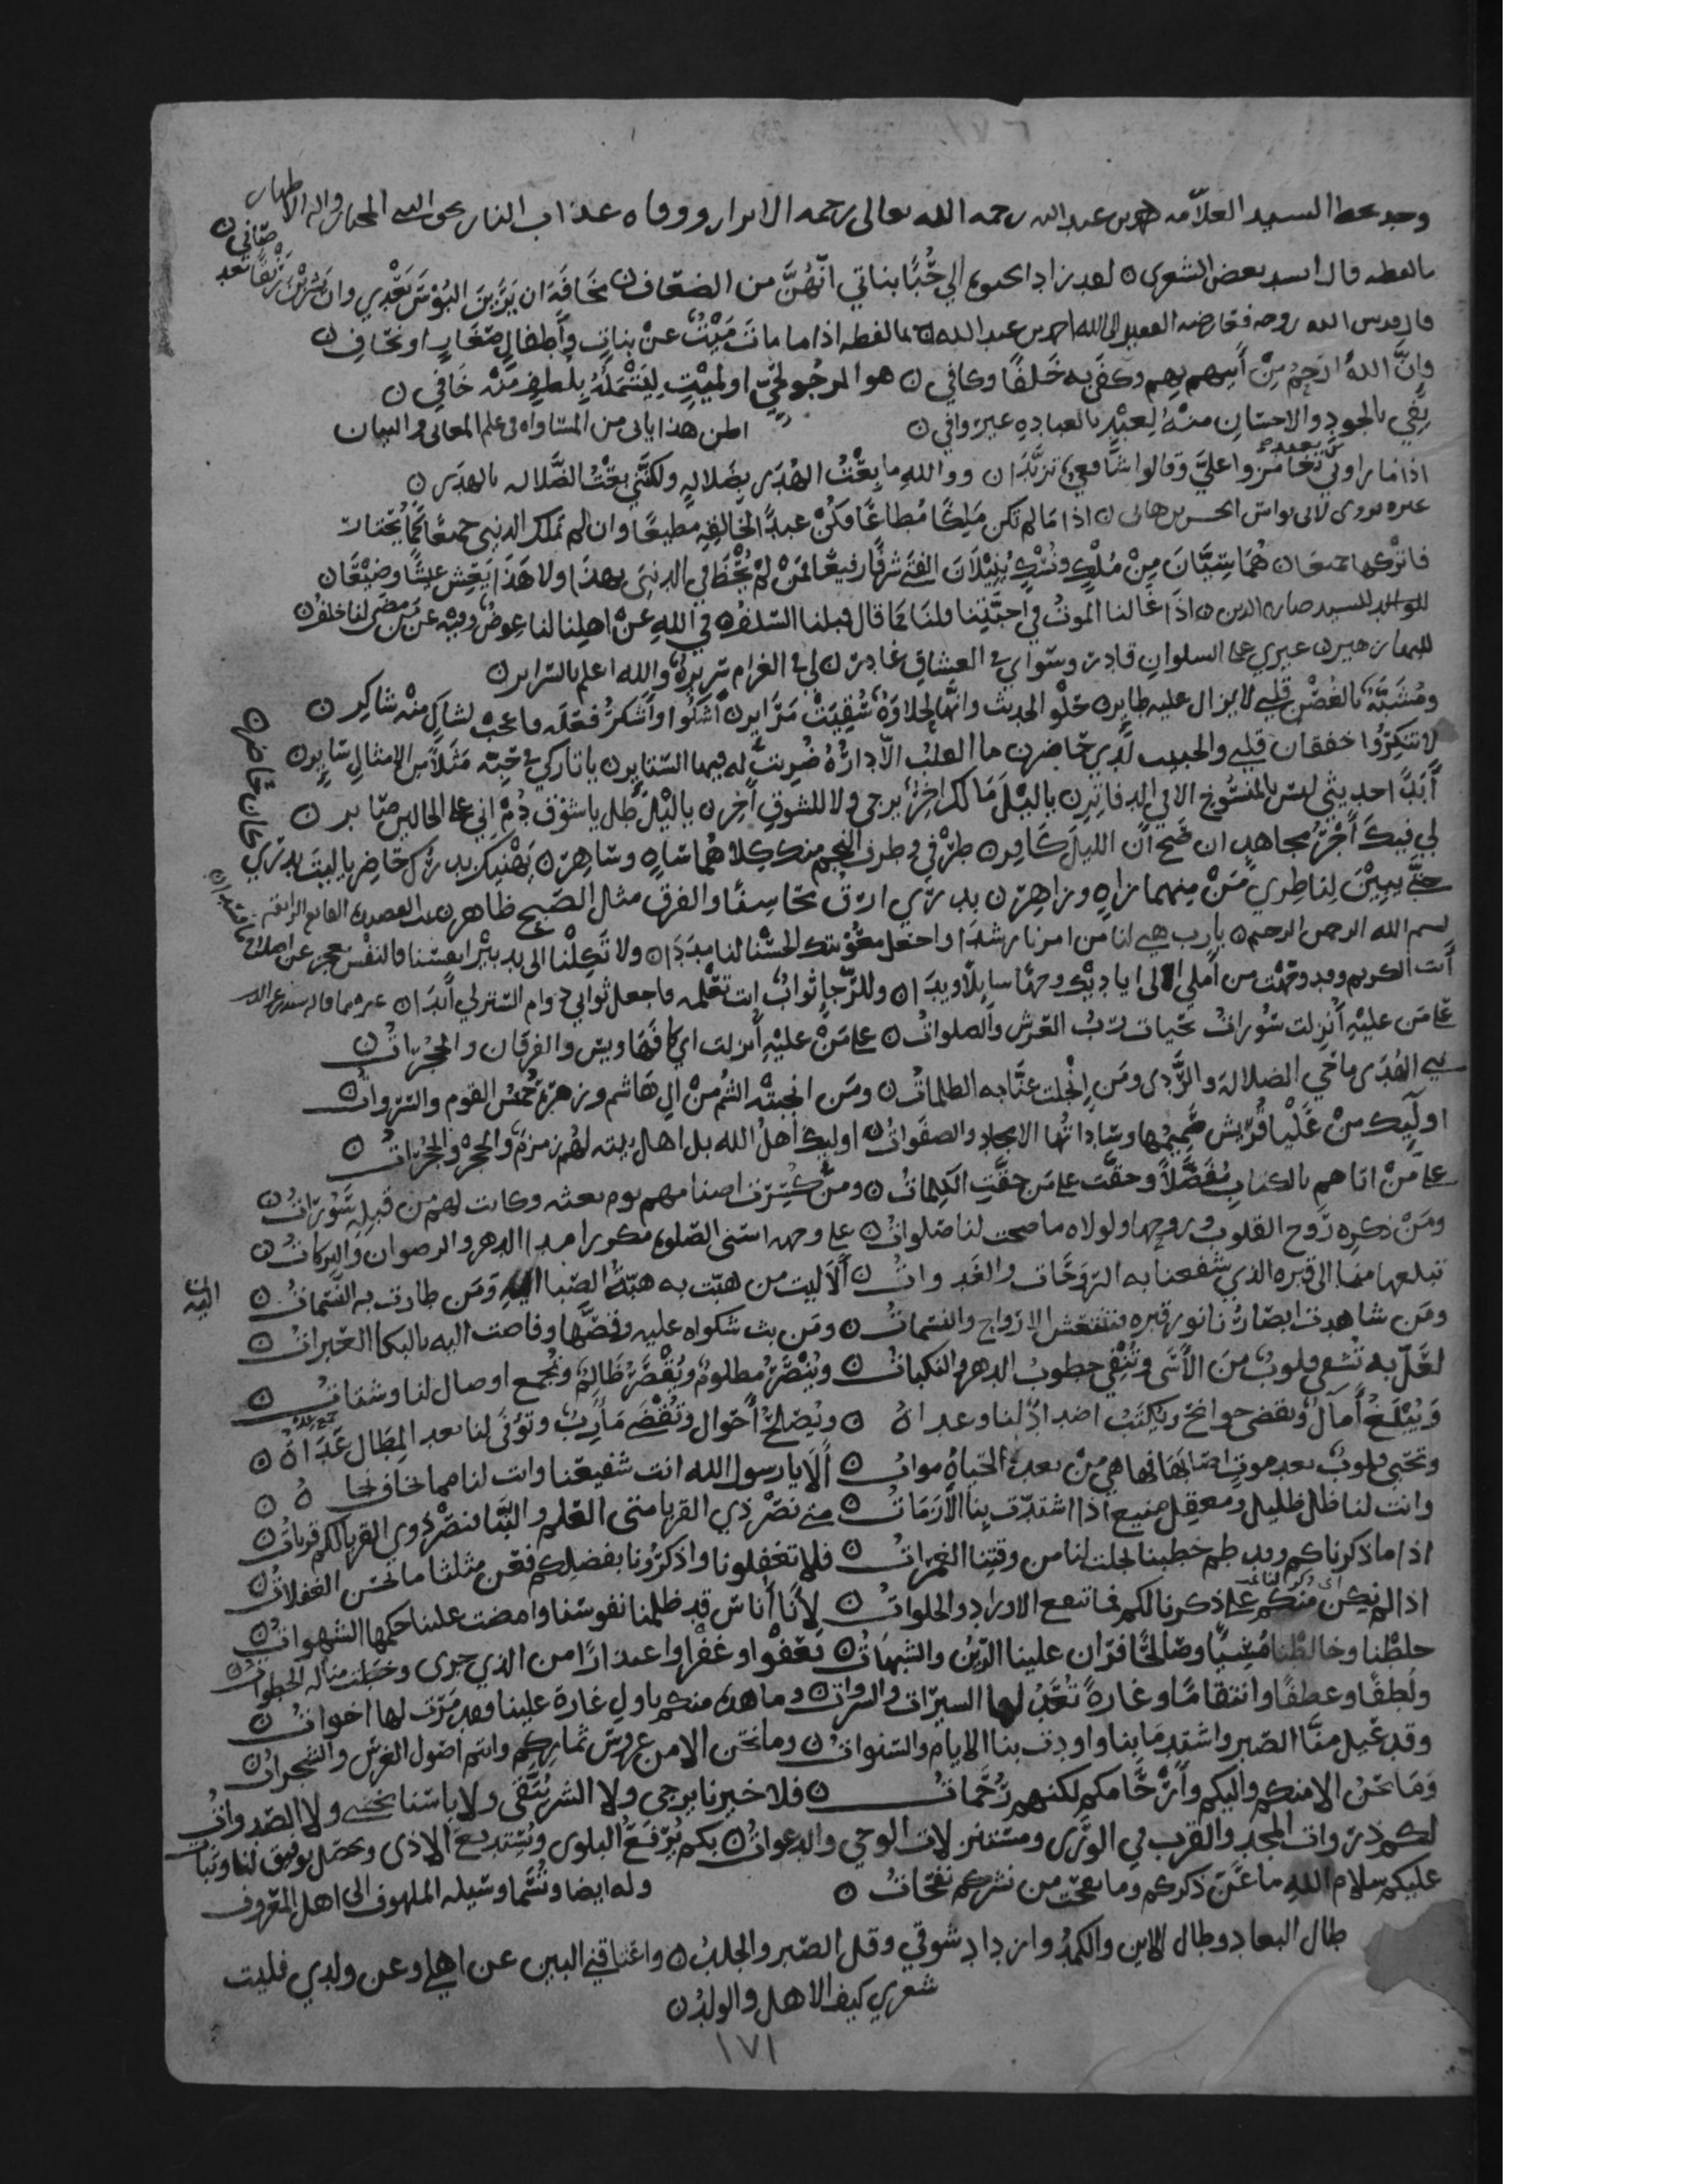 وجد بخط السيد العلامه احمد بن عبد الله رحمه الله تعالى رحمه الابرار ووقاه عذاب النار بحق النبي المختار واله الاطهار
ما لفظه قال انشد بعض الشعرى لقد زاد الحيوه الي حُبًّا بناتي انّهُنَّ من الضعاف مخافَة ان يَرَيْنَ البُؤسَ بَعْدِي وان يشربْنَ رَنْقًا بعد صافي
قال قدس الله روحه فعارضه الفقير الى الله احمد بن عبد الله بما لفظه اذا ما مات مَيْتٌ عنْ بناتٍ وأطفالٍ صغارٍ او نحافِ
وانَّ اللهَ ارحمُ مِنْ أبيهم بهم وكفَى به خَلَفًا وكافي هو المرجو لحيٍّ او لميْتٍ ليشْمَلَهُ بِلطفٍ منْه خَافي
يَفِي بالجودِ والاحسانِ منْهُ لِعبْدٍ بالعبادهِ غير وافي اظن هذا ياتى من المساواه فى علم المعانى والبيان
اذا ما راوني تغامزوا عليَّ وقالوا شافعيٌّ تزيَّدا ووالله ما بِعْتُ الهُدَى بضَلالهٍ ولكنَّني بعْتُ الضَّلاله بالهدَى
غيره يروى لابى نواس الحسن بن هانى اذا مَا لم تكن مَلِكًا مُطاعًا فكُنْ عبدًا لخالقِهِ مطيعًا وان لم تملك الدنيى جميعًا كما تختار
فاتركها جميعًا هُمَا سَبَبَانِ مِنْ مُلْكٍ ونُسْكٍ يُنِيْلَانِ الفتى شرفًا رفيعًا فمَنْ لمْ يحْظَ في الدنيَى بهذا ولا هَذَا يَعِشْ عيشًا وضِيْعًا
للوالد السيد صارم الدين اذا غالنا الموتُ في احبّتِنا قلنَا كَمَا قال قبلنا السَّلفُ في اللهِ عنْ اهلِنا لنا عِوضٌ وفيه عن مَن مضى لنا خلفُ
للبها زهير غيري على السلوانِ قادر وسواي في العشاق غادر لي في الغرام سريرةٌ والله اعلم بالسراير
ومُشَبَّهٌ بالغُصْنِ قلبي لا يزال عليه طاير حُلْو الحديث وانّها لحلاوَةٌ شُقِيَتْ مَرَاير أشكُوا وأشكرُ فعْلَه فاعجب لشاكٍ منْه شاكِر
لا تنكِرُوا خفقان قلبي والحبيب لَدي حَاضر ما القلبُ الّا دارُهُ ضُربَتْ له فيها البشَاير يا تاركي في حبّه مَثَلًا من الامثال سَاير
أبَدًا حديثي ليسَ بالمنسُوخِ الا في الدفاتِر ياليْلَ مَا لكَ اخِرٌ يرجى ولا للشوقِ اخِر ياليْلُ طُل ياشوقُ دُمْ اني على الحالين صابر
لي فيكَ أجْرُ مجاهدٍ ان صَحَ أنّ الليلَ كَافر طَرْفي وطرف النجم فيك كِلاهُمَا سَاهٍ وسَاهِر يَهْنِيكَ بدرُكَ حَاضِر ياليتَ بدري كان حَاضر
حتّى يبيْنَ لنَاظِري مَنْ مِنهما زاهٍ وزاهِر بدري ارق محاسِنًا والفرق مثل الصبح ظاهر
بسم الله الرحمن الرحيم يا رب هيّئ لنا من امرنا رشدا واجعل معوْنتك الحسْنَى لنا مدَدا ولا تَكِلْنا الى تدبيْرِ انفسنا فالنفْس تعجز عن اصلاح ما فسدا
أنتَ الكريم وقد وجهْتُ من أملي الى اياديْك وجهًا سايلًا ويدَا وللرّجا ثوابٌ انت تعْلمه فاجعل ثوابي دوام السّتر لي أبدَا
عَلَى مَن عليْهِ أُنْزلت سُوراتُ تحيات ربِّ العرْش والصلواتُ على مَنْ عليْهِ أنزلت اي كافها ويس والفرقان والحجُراتُ
نبي الهُدَى ماحي الضلالة والرَّدى ومَن انجلت عنّا به الظلماتُ ومَن انجبتْه الشُمُّ منْ الِ هَاشم وزهرة حُمْسُ القوم والسَّرواتُ
اولئِك منْ عَلْيا قُرَيش صَمِيمُها وسَاداتُها الامجاد والصفواتُ اوليك أهلُ الله بل اهل بيته لهُم زمزمٌ والحِجْرُ والحُجُراتُ
على مَنْ اتاهم بالكتابِ مُفَصَّلًا وحقّت على مَن حقَّتِ الكلِماتُ ومنْ كُسِّرت اصنامهم يوم بعثه وكانت لهم من قبلِه سَوراتُ
ومَنْ ذكره رَوح القلوب وروحها ولولاه ما صحت لنا صَلواتُ على وجهه اسنى الصّلوه مكررا مدا الدهر والرضوان والبركاتُ
تبلغها منّا الى قبره الذي شفعنا به الرَّوحَات والغَدواتُ ألا ليت من هبّت به هبَّةُ الصّبا اليه ومَن طارت به النَّسَماتُ
ومَن شاهدت ابصارُنا نور قبره فتنتعش الارواح والنسَماتُ ومَن بث شكواه عليه وقصَّها وفاضت اليه بالبكا العَبراتُ
لعَلّ به تشفى قلوبٌ منَ الأسَى وتُنْفى خطوبُ الدهر والنكباتُ ويُنْصَرُ مظلومٌ ويُقْصَرُ ظَالِمٌ ويُجمع اوصال لنا وشتاتُ
وَيُبْلَغُ أمالٌ وتقضى حوائج ويُكْبَتُ اضدادٌ لنا وعداةُ ويُصْلحُ أحوال وتُقْضَى مَأرِبٌ وتُوفَى لنا بعد المِطَال عِدَاتُ
وتحْيى قلوبٌ بعد موتٍ اصَابهَا فها هي منْ بعد الحَياةِ مواتُ ألا يا رسول الله انت شفيعنا وانت لنا مما نخاف نجاةُ
وانت لنا ظل ظليل ومعقِل منيع اذا اشتدّت بنا الأزمَاتُ متى نصْر ذي القربا متى العَلم والنبا لنصْرِ ذوي القربا لكم قرباتُ
اذا ما ذكرناكم وقد طم خطبنا تجلت لنا من وقتِنا الغمراتُ فلا تغفلونا واذكرُونا بفضلِكم فعَن مثلنا ما تحسُن الغفلاتُ
اذا لم يكن منكم على ذكرنا لكم فما تنفع الاوراد والخلواتُ لأنَا أناس قد ظلمنا نفوسَنا وامضت علينا حكمها الشهواتُ
خلطْنا وخالطْنا مُسِيئًا وصَالحًا فرَان علينا الرَّين والشبهَاتُ فعَفْوا وغفْرا واعتذارًا من الذي جرى وخطت منا له الخطواتُ
ولُطفًا وعطفًا وانتقامًا وغارةً تُعَدُّ لها السَيراتُ والسرواتُ وما هذه منكم باول غارة علينا وقد مَرّت لها اخواتُ
وقد عِيل منَّا الصّبر واشتد مَا بنا واودت بنا الايام والسَنواتُ وما نحن الا من غروس ثمارِكم وانتم اصُول الغرس والشجراتُ
وَمَا نحْنُ الا منكم واليكم وأرْحَامكم لكنهم رُحَماتُ فلا خيرنا يرجى ولا الشر يُتَّقى ولا باسنا يخشى ولا الصّدواتُ
لكم ذروات المجْد والقرب في الورَى ومستنزلات الوحي والدعواتُ بكم يُرْفَعُ البلوى ويُسْتدفع الاذى ويحصل توفيق لنا وثباتُ
عليكم سلام الله ما عَنَّ ذكركم وما نفحت من نشركم نفحَاتُ وله ايضا وتُسَّما وسَيله الملهوف الى اهل المعْروف
طال البعاد وطال الاين والكمدُ وازداد شوقي وقل الصبر والجلدُ واعتاقني البين عن اهلي وعن ولدي فليت
شعري كيف الاهل والولدُ
١٧١